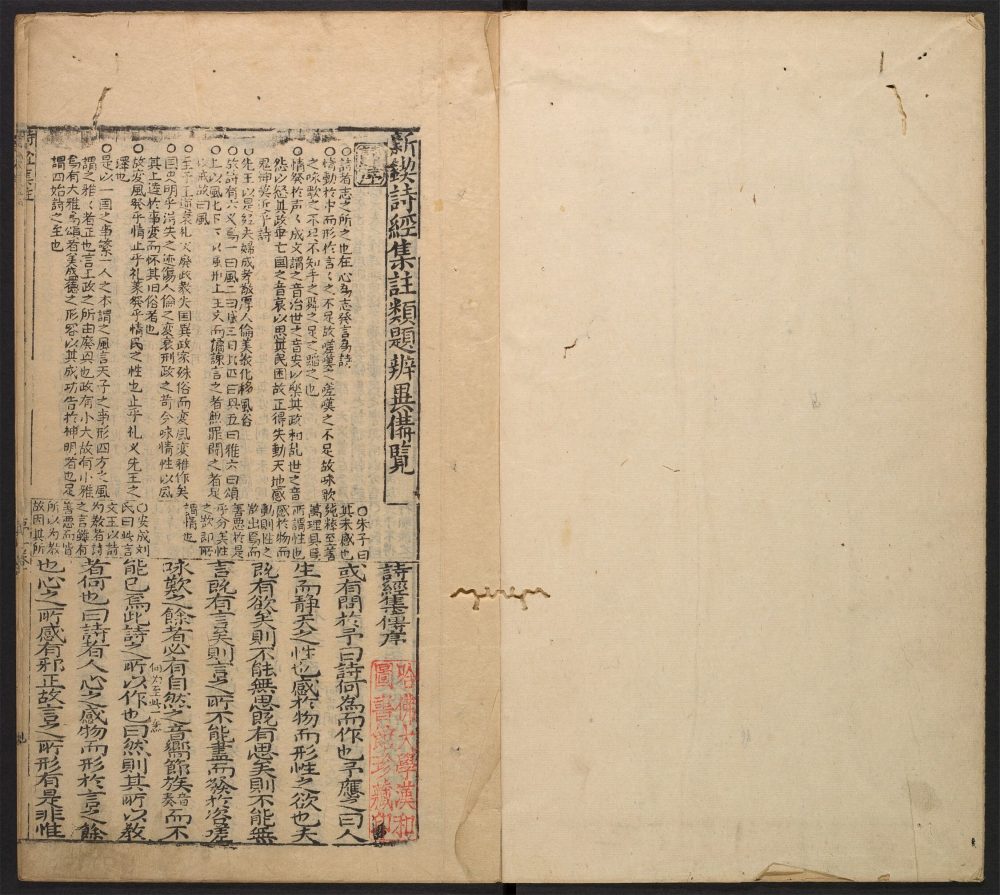 新鍥詩經集註類題辨異備覽 一
詩序
○詩者志之所之也在心為志發言為詩
○情動於中而形於言〻之不足故嗟嘆之嗟嘆之不足故咏歌
之咏歌之不足不知手之舞之足之蹈之也
○情發於声〻成文謂之音治世之音安以樂其政和乱世之音
怨以怒其政乖亡國之音哀以思其民困故正得失動天地感
鬼神莫近乎詩
○先王以是經夫婦成孝敬厚人倫美教化移風俗
○故詩有六义焉一曰風二曰賦三曰比四曰興五曰雅六曰頌
○上以風化下下以風刺上主文而譎諫言之者無罪聞之者足
戒故曰風
○至于王道衰礼义廢政教失国異政家殊俗而変風変雅作矣
○国史明乎淂失之迹傷人倫之変哀刑政之苛吟咏情性以風
其上達於事変而怀其旧俗者也
○故変風發乎情止乎礼义發乎情民之性也止乎礼义先王之
澤也
○是以一国之事繫一人之本謂之風言天子之事形四方之風
謂之雅〻者正也言王政之所由廢興也政有小大故有小雅
焉有大雅焉頌者美盛德之形容以其成功告於神明者也是
謂四始詩之至也
○朱子曰
其未感也
純粹至善
萬理具焉
所謂性也
感於物而
動則性之
欲出焉而
善惡於是
乎分矣性
之欲卽所
謂情也
○安成刘
氏曰時言
文王以詩
為教者詩
之言雖有
善惡而皆
所以為教
故因其所
詩經集傳序
或有問於予曰詩何為而作也予應之曰人
生而静天之性也感於物而形性之欲也夫
既有欲矣則不能無思既有思矣則不能無
言既有言矣則言之所不能盡而發於咨嗟
咏歎之餘者必有自然之音嚮節族音奏而不
能已焉此詩之所以作也曰然則其所以教
者何也曰詩者人心之感物而形於言之餘
也心之所感有邪正故言之所形有是非惟
哈佛大學漢和
圖書館珍藏印
詩經集註